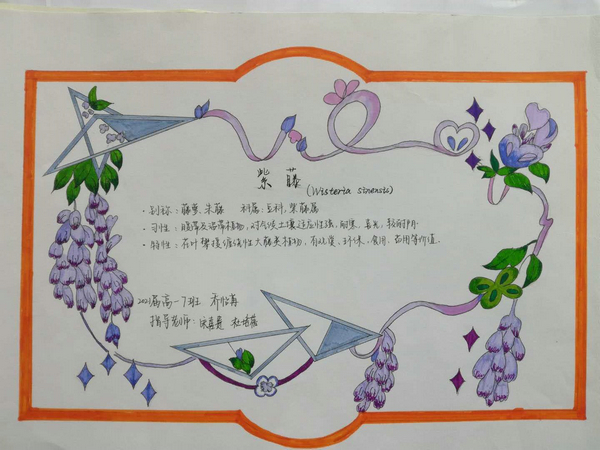 紫 藤
(Wisteria sinensis)
· 别称：藤萝、朱藤 科属：豆科，紫藤属
· 习性：暖带及温带植物，对气候土壤适应性强，耐寒，喜光，较耐阴。
· 特性：落叶攀援缠绕性大藤类植物，有观赏、环保、食用、药用等价值。
2021届高一7班 乔怡冉
指导老师：